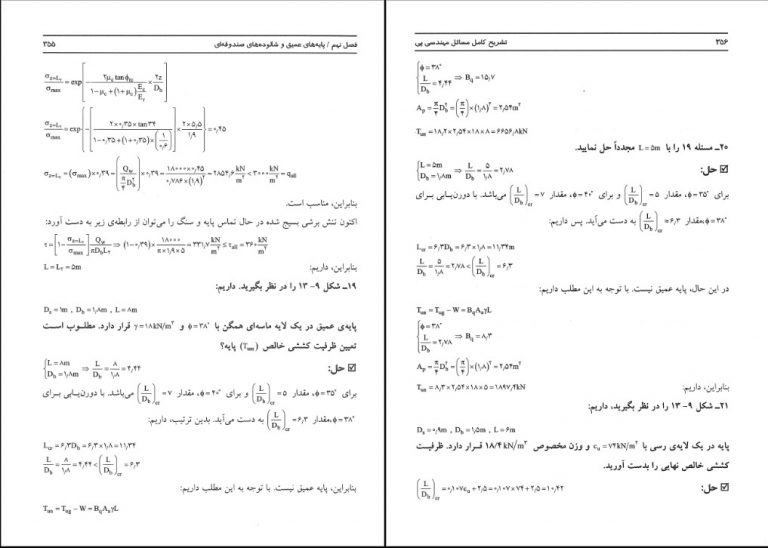 فصل نهم / پایه‌های عمیق و شالوده‌های صندوقه‌ای ۳۵۵
σz=Lr / σmax = exp[ − (2μc tanφfc / (1 − μc + (1 + μr) Ec/Er)) × 2z/Db ]
σz=Lr / σmax = exp{ −[ (۲×۰٫۳۵×tan۳۴) / (۱−۰٫۳۵+(۱+۰٫۳۵)(۱/۰٫۶)) ] × (۲×۵٫۵/۱٫۹) } = ۰٫۴۵
σz=Lr = (σmax)×۰٫۳۹ = (Qw / (π/۴ Db²))×۰٫۳۹ = (۱۸۰۰۰×۰٫۴۵)/(۰٫۷۸۶×(۱٫۹)²) = ۲۸۵۴٫۶ kN/m² < ۳۰۰۰ kN/m² = qall
بنابراین، مناسب است.
اکنون تنش برشی بسیج شده در حال تماس پایه و سنگ را می‌توان از رابطه‌ی زیر به دست آورد:
τ = [1 − σz=Lr/σmax] Qw/(πDbLr) ⇒ (۱−۰٫۳۹)× ۱۸۰۰۰/(π×۱٫۹×۵) = ۳۳۱٫۷ kN/m² ≤ τall = ۳۶۰ kN/m²
بنابراین، داریم:
L = Lr = ۵m
۱۹ـ شکل ۹-۱۳ را در نظر بگیرید. داریم:
Ds = ۱m , Db = ۱٫۸m , L = ۸m
پایه‌ی عمیق در یک لایه ماسه‌ای همگن با φ = ۳۸° و γ = ۱۸kN/m³ قرار دارد. مطلوب است
تعیین ظرفیت کششی خالص (Tun) پایه؟
حل: {L = ۸m, Db = ۱٫۸m ⇒ L/Db = ۸/۱٫۸ = ۴٫۴۴
برای φ = ۳۵°، مقدار (L/Db)cr = ۵ و برای φ = ۴۰°، مقدار (L/Db)cr = ۷ می‌باشد. با دورن‌یابی بـرای
φ = ۳۸°،مقدار (L/Db)cr = ۶٫۳ به دست می‌آید. بدین ترتیب، داریم:
Lcr = ۶٫۳Db = ۶٫۳×۱٫۸ = ۱۱٫۳۴
L/Db = ۸/۱٫۸ = ۴٫۴۴ < (L/Db)cr = ۶٫۳
بنابراین، پایه عمیق نیست. با توجه به این مطلب داریم:
Tun = Tug − W = BqApγL
۳۵۶ تشریح کامل مسائل مهندسی پی
{φ = ۳۸°, L/Db = ۴٫۴۴ ⇒ Bq = ۱۵٫۷
Ap = π/۴ Db² = (π/۴)×(۱٫۸)² = ۲٫۵۴m²
Tun = ۱۸٫۲×۲٫۵۴×۱۸×۸ = ۶۶۵۶٫۸kN
۲۰ـ مسئله ۱۹ را با L = ۵m مجدداً حل نمایید.
حل: {L = ۵m, Db = ۱٫۸m ⇒ L/Db = ۵/۱٫۸ = ۲٫۷۸
برای φ = ۳۵°، مقدار (L/Db)cr = ۵ و برای φ = ۴۰°، مقدار (L/Db)cr = ۷ می‌باشد. با دورن‌یابی بـرای
φ = ۳۸°،مقدار (L/Db)cr ≈ ۶٫۳ به دست می‌آید. پس داریم:
Lcr = ۶٫۳Db = ۶٫۳×۱٫۸ = ۱۱٫۳۴m
L/Db = ۵/۱٫۸ = ۲٫۷۸ < (L/Db)cr = ۶٫۳
در این حال، پایه عمیق نیست. با توجه به این مطلب داریم:
Tun = Tug − W = BqApγL
{φ = ۳۸°, L/Db = ۲٫۷۸ ⇒ Bq = ۸٫۳
Ap = π/۴ Db² = (π/۴)×(۱٫۸)² = ۲٫۵۴m²
بنابراین، داریم: Tun = ۸٫۳×۲٫۵۴×۱۸×۵ = ۱۸۹۷٫۴kN
۲۱ـ شکل ۹-۱۳ را در نظر بگیرید، داریم:
Ds = ۰٫۹m , Db = ۱٫۵m , L = ۶m
پایه در یک لایه‌ی رسی با cu = ۷۴kN/m² و وزن مخصوص ۱۸/۴ kN/m³ قـرار دارد. ظرفیـت
کششی خالص نهایی را بدست آورید.
حل: (L/Db)cr = ۰٫۱۰۷cu + ۲٫۵ = ۰٫۱۰۷×۷۴ + ۲٫۵ = ۱۰٫۴۲